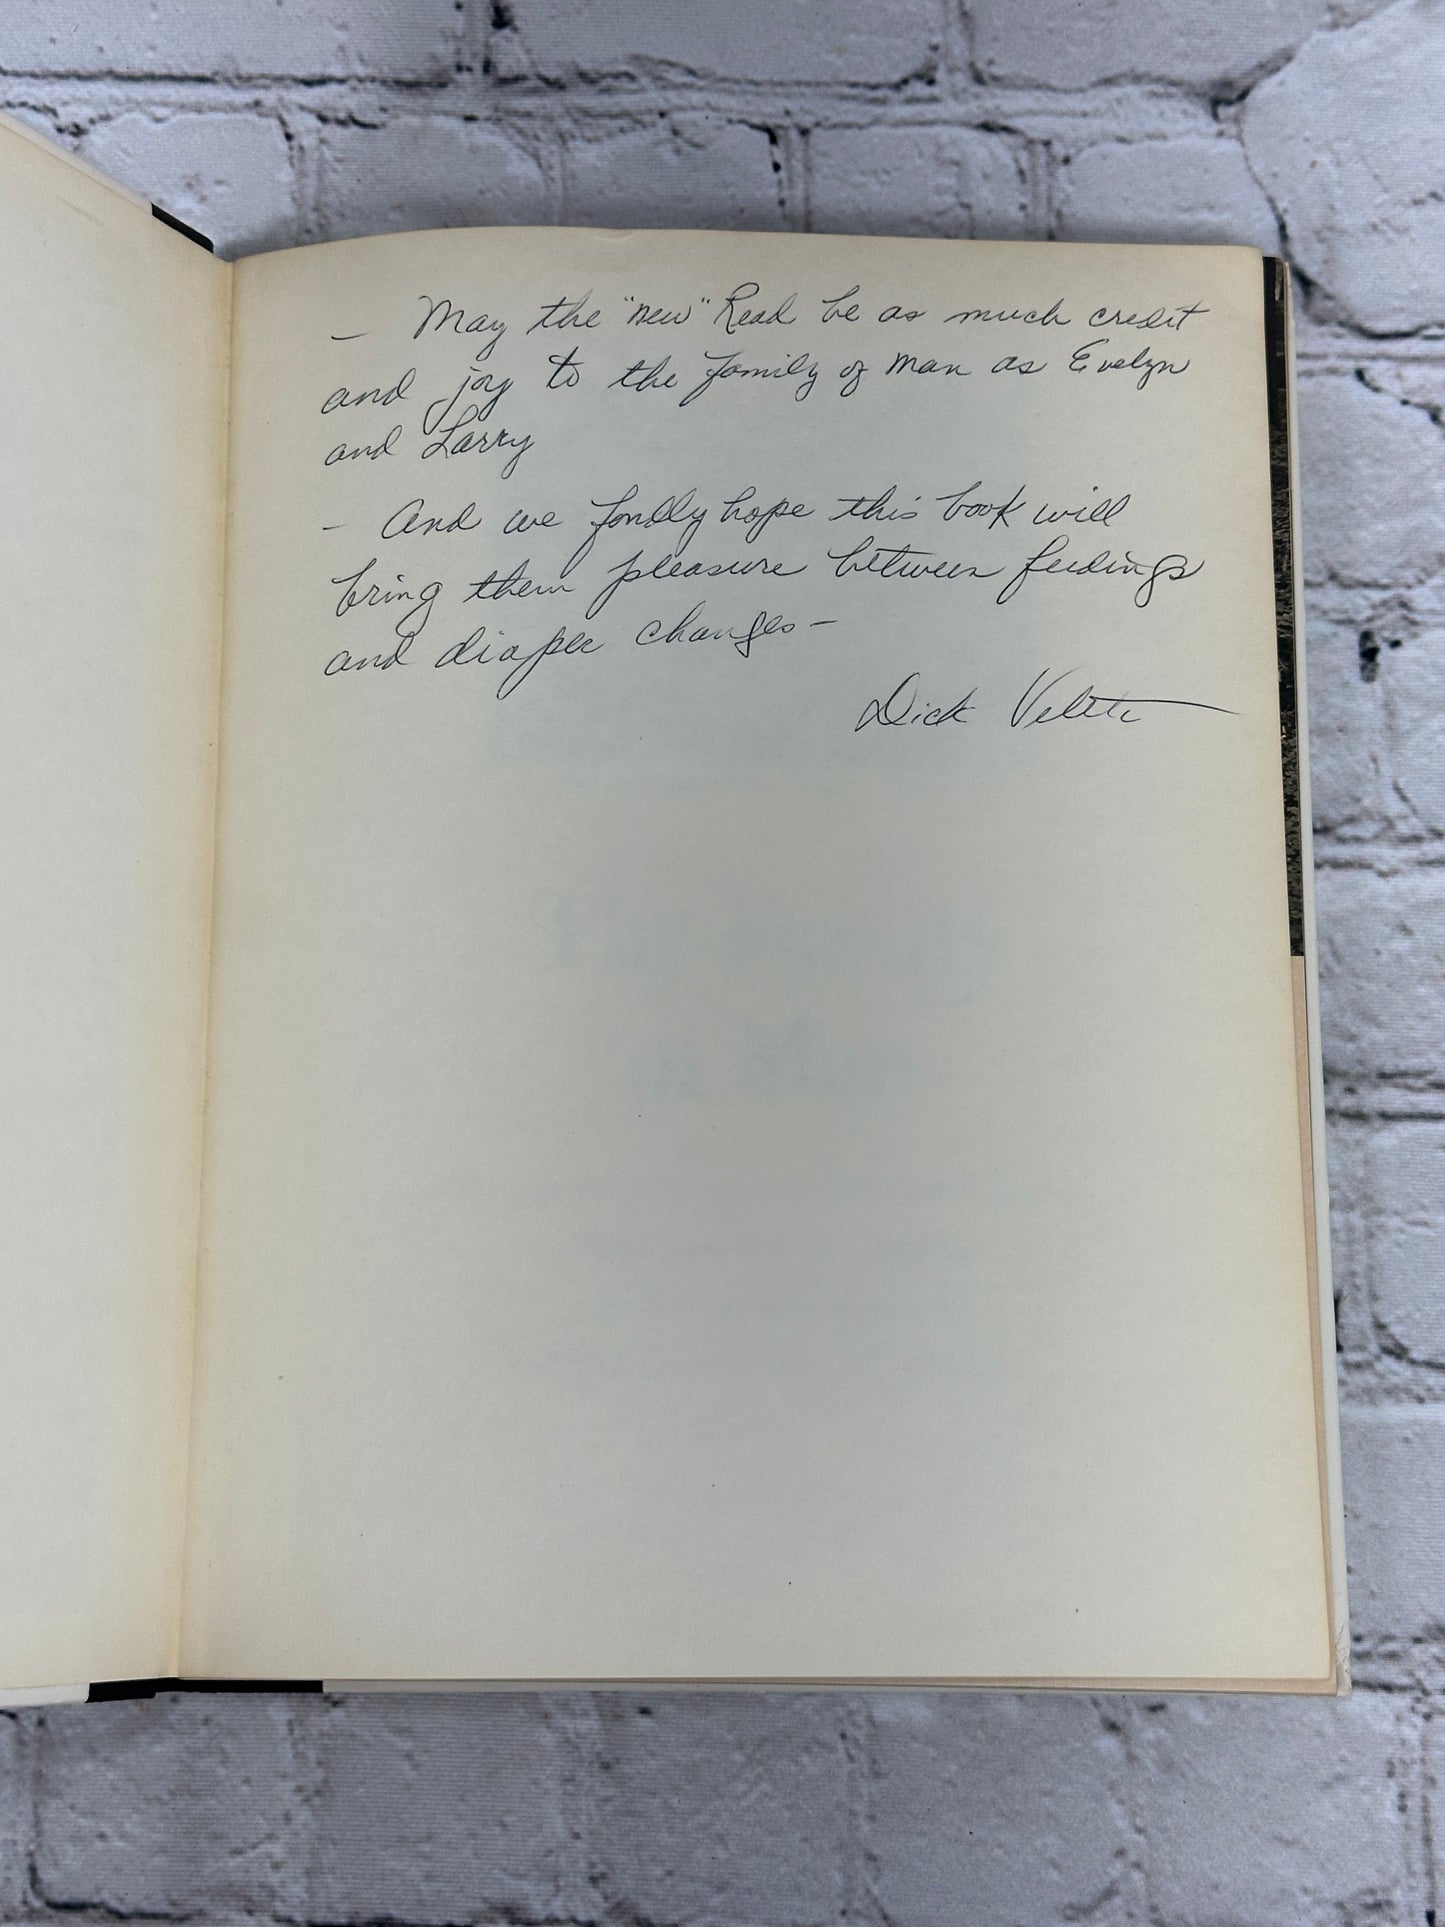 — May the "new" Read be as much credit
and joy to the family of man as Evelyn
and Larry
— And we fondly hope this book will
bring them pleasure between feedings
and diaper changes —
Dick